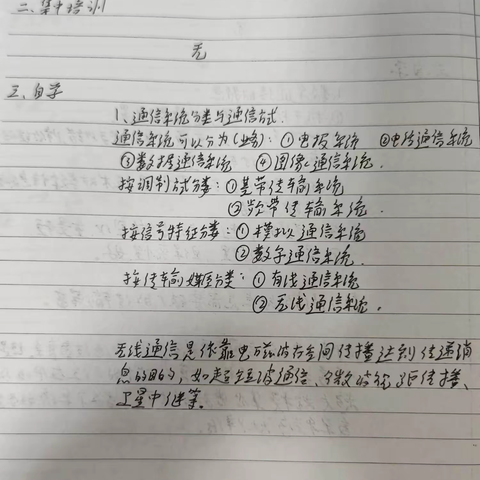 二、集中培训
无
三、自学
1、通信系统分类与通信方式.
通信系统可以分为(业务)：①电报系统 ②电话通信系统
③数据通信系统 ④图像通信系统.
按调制式分类：①基带传输系统
②频带传输系统.
按信号特征分类：①模拟通信系统
②数字通信系统.
按传输媒质分类：①有线通信系统
②无线通信系统.
无线通信是依靠电磁波在空间传播达到传递消
息的目的，如短波通信、微波视距传播、
卫星中继等.